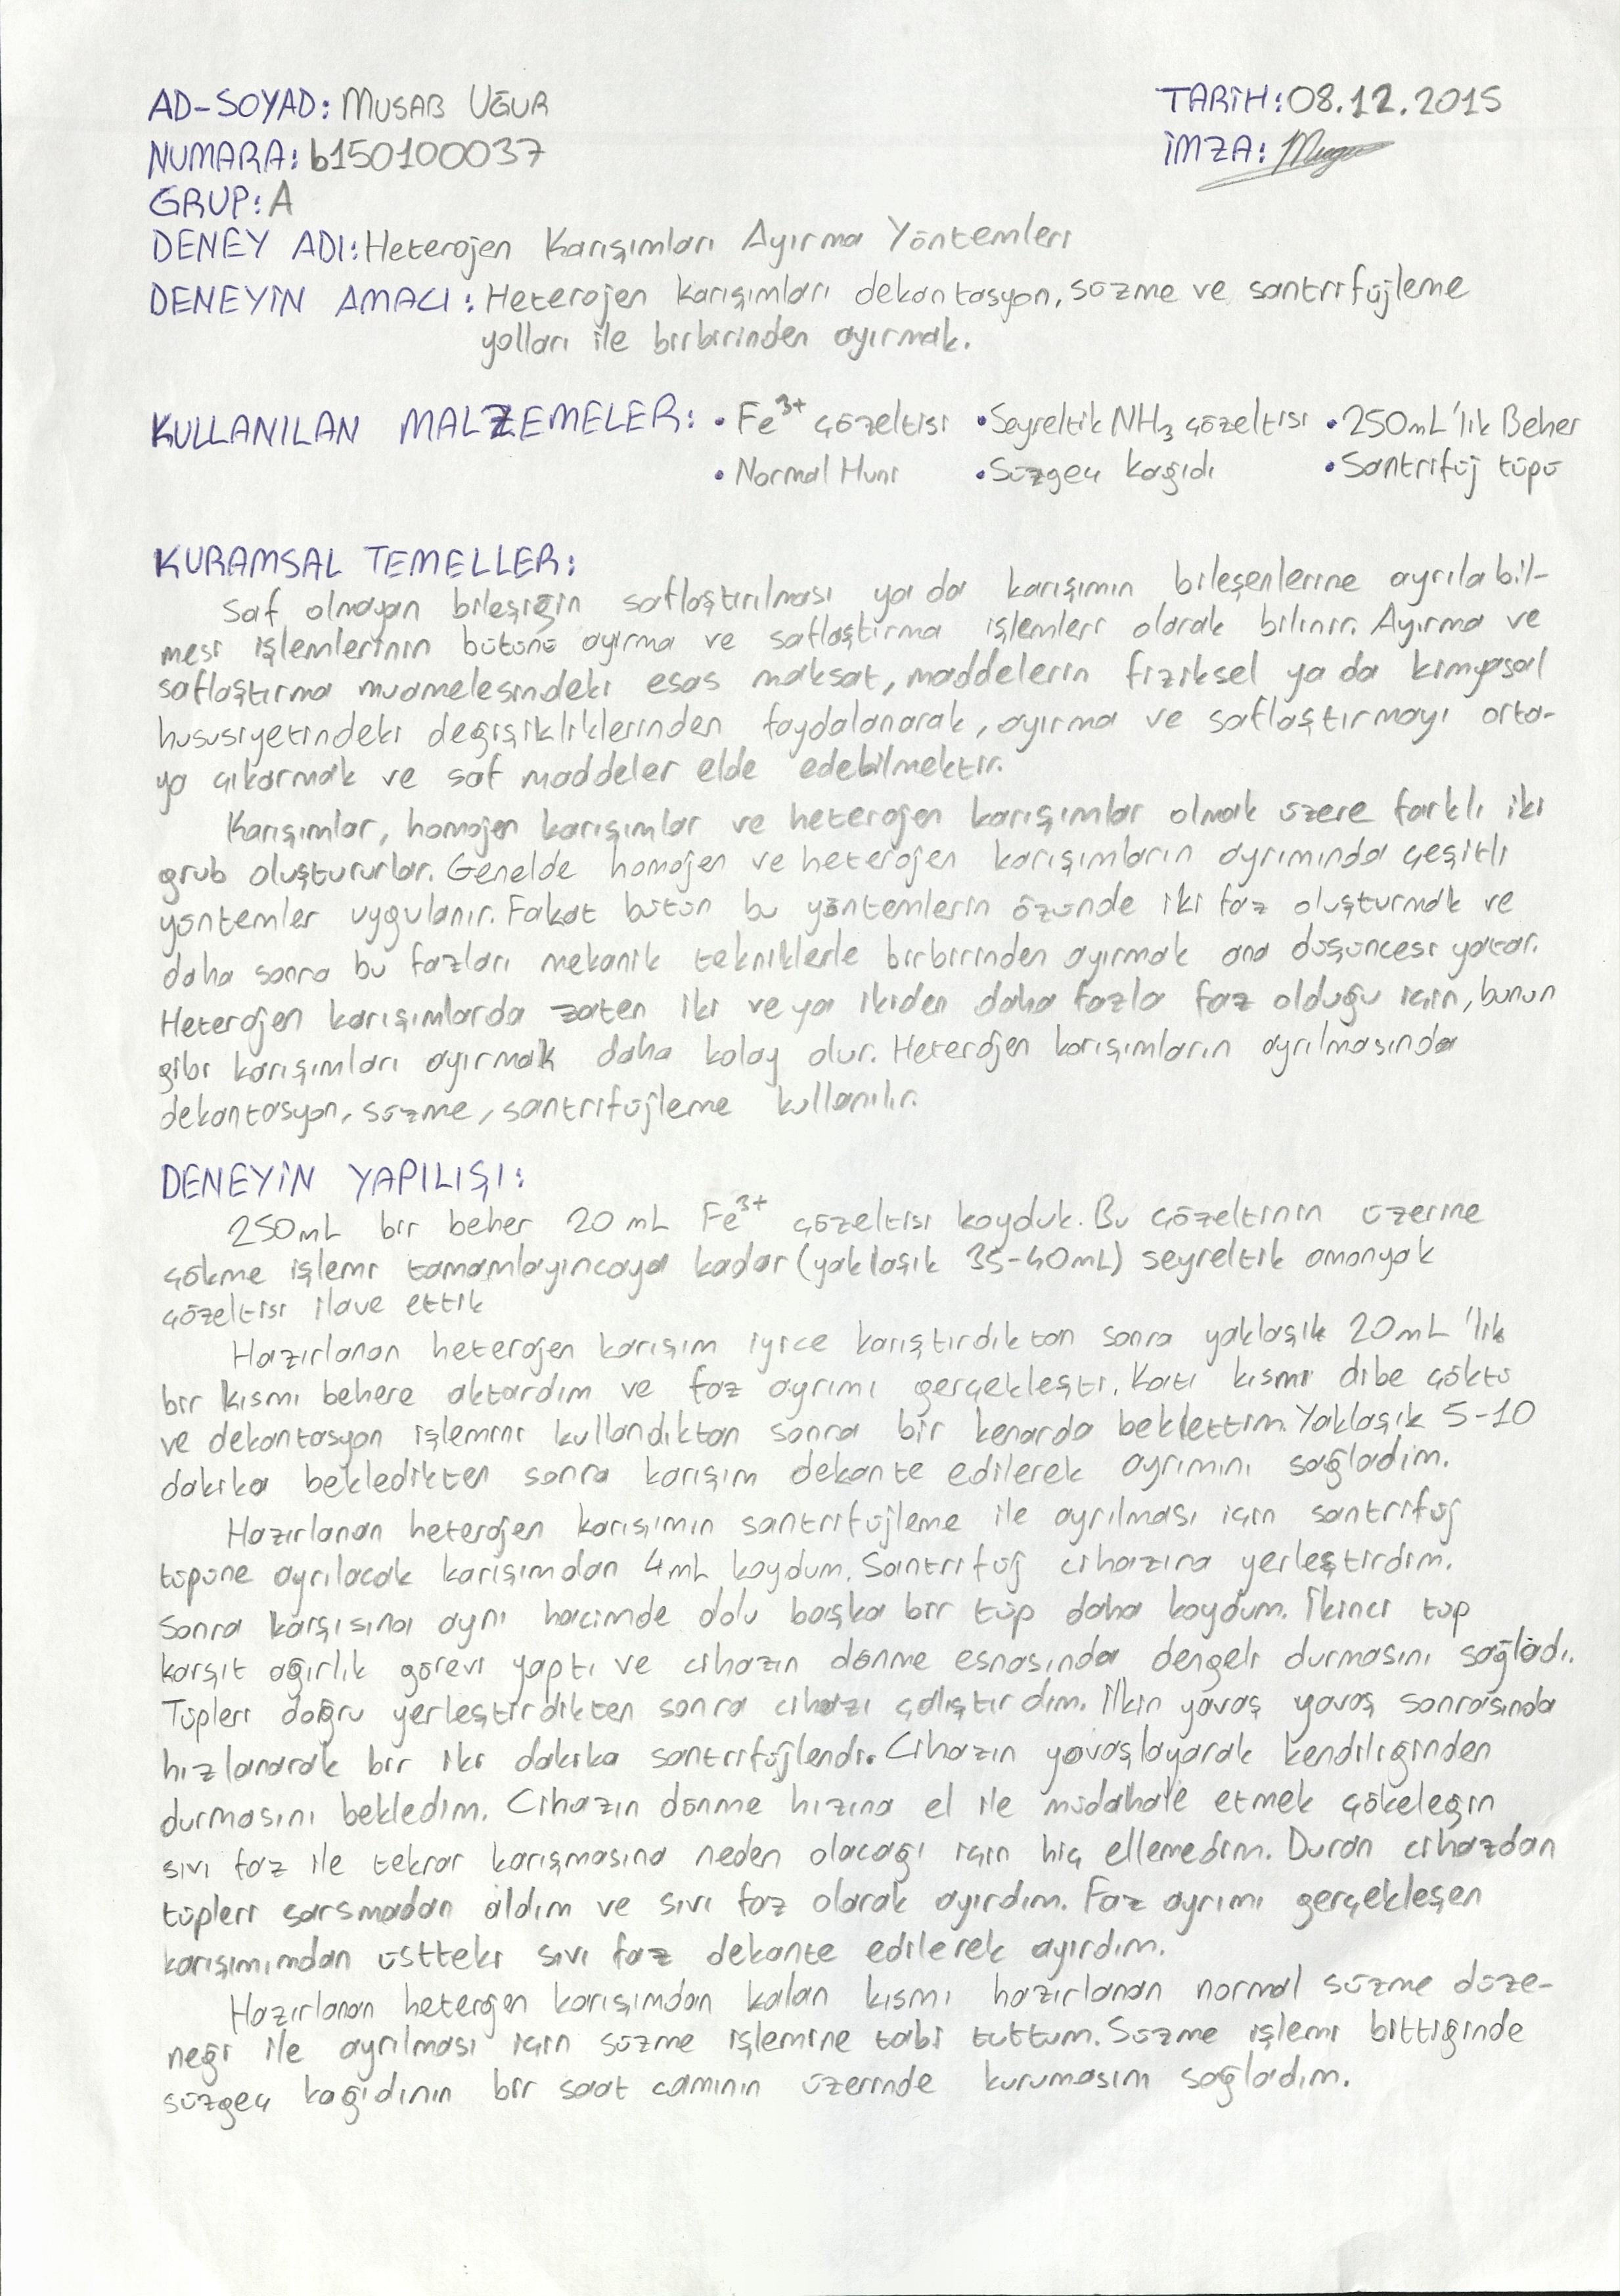 AD-SOYAD: MUSAB UĞUR
TARİH: 08.12.2015
NUMARA: b150100037
İMZA:
GRUP: A
DENEY ADI: Heterojen Karışımları Ayırma Yöntemleri
DENEYİN AMACI: Heterojen karışımları dekantasyon, süzme ve santrifüjleme
yolları ile birbirinden ayırmak.
KULLANILAN MALZEMELER: • Fe³⁺ çözeltisi • Seyreltik NH₃ çözeltisi • 250mL'lik Beher
• Normal Huni • Süzgeç kağıdı • Santrifüj tüpü
KURAMSAL TEMELLER:
Saf olmayan bileşiğin saflaştırılması ya da karışımın bileşenlerine ayrılabil-
mesi işlemlerinin bütünü ayırma ve saflaştırma işlemleri olarak bilinir. Ayırma ve
saflaştırma muamelesindeki esas maksat, maddelerin fiziksel ya da kimyasal
hususiyetindeki değişikliklerinden faydalanarak, ayırma ve saflaştırmayı orta-
ya çıkarmak ve saf maddeler elde edebilmektir.
Karışımlar, homojen karışımlar ve heterojen karışımlar olmak üzere farklı iki
grub oluştururlar. Genelde homojen ve heterojen karışımların ayrımında çeşitli
yöntemler uygulanır. Fakat bütün bu yöntemlerin özünde iki faz oluşturmak ve
daha sonra bu fazları mekanik tekniklerle birbirinden ayırmak ana düşüncesi yatar.
Heterojen karışımlarda zaten iki ve ya ikiden daha fazla faz olduğu için, bunun
gibi karışımları ayırmak daha kolay olur. Heterojen karışımların ayrılmasında
dekantasyon, süzme, santrifüjleme kullanılır.
DENEYİN YAPILIŞI:
250mL bir beher 20 mL Fe³⁺ çözeltisi koyduk. Bu çözeltinin üzerine
çökme işlemi tamamlayıncaya kadar (yaklaşık 35-40mL) seyreltik amonyak
çözeltisi ilave ettik
Hazırlanan heterojen karışım iyice karıştırdıktan sonra yaklaşık 20mL'lik
bir kısmı behere aktardım ve faz ayrımı gerçekleşti. Katı kısmı dibe çöktü
ve dekantasyon işlemini kullandıktan sonra bir kenarda beklettim. Yaklaşık 5-10
dakika bekledikten sonra karışım dekante edilerek ayrımını sağladım.
Hazırlanan heterojen karışımın santrifüjleme ile ayrılması için santrifüj
tüpüne ayrılacak karışımdan 4mL koydum. Santrifüj cihazına yerleştirdim.
Sonra karşısına aynı hacimde dolu başka bir tüp daha koydum. İkinci tüp
karşıt ağırlık görevi yaptı ve cihazın dönme esnasında dengeli durmasını sağladı.
Tüpleri doğru yerleştirdikten sonra cihazı çalıştırdım. İlkin yavaş yavaş sonrasında
hızlanarak bir iki dakika santrifüjlendi. Cihazın yavaşlayarak kendiliğinden
durmasını bekledim. Cihazın dönme hızına el ile müdahale etmek çökeleğin
sıvı faz ile tekrar karışmasına neden olacağı için hiç ellemedim. Duran cihazdan
tüpleri sarsmadan aldım ve sıvı faz olarak ayırdım. Faz ayrımı gerçekleşen
karışımımdan üstteki sıvı faz dekante edilerek ayırdım.
Hazırlanan heterojen karışımdan kalan kısmı hazırlanan normal süzme düze-
neği ile ayrılması için süzme işlemine tabi tuttum. Süzme işlemi bittiğinde
süzgeç kağıdının bir saat camının üzerinde kurumasını sağladım.